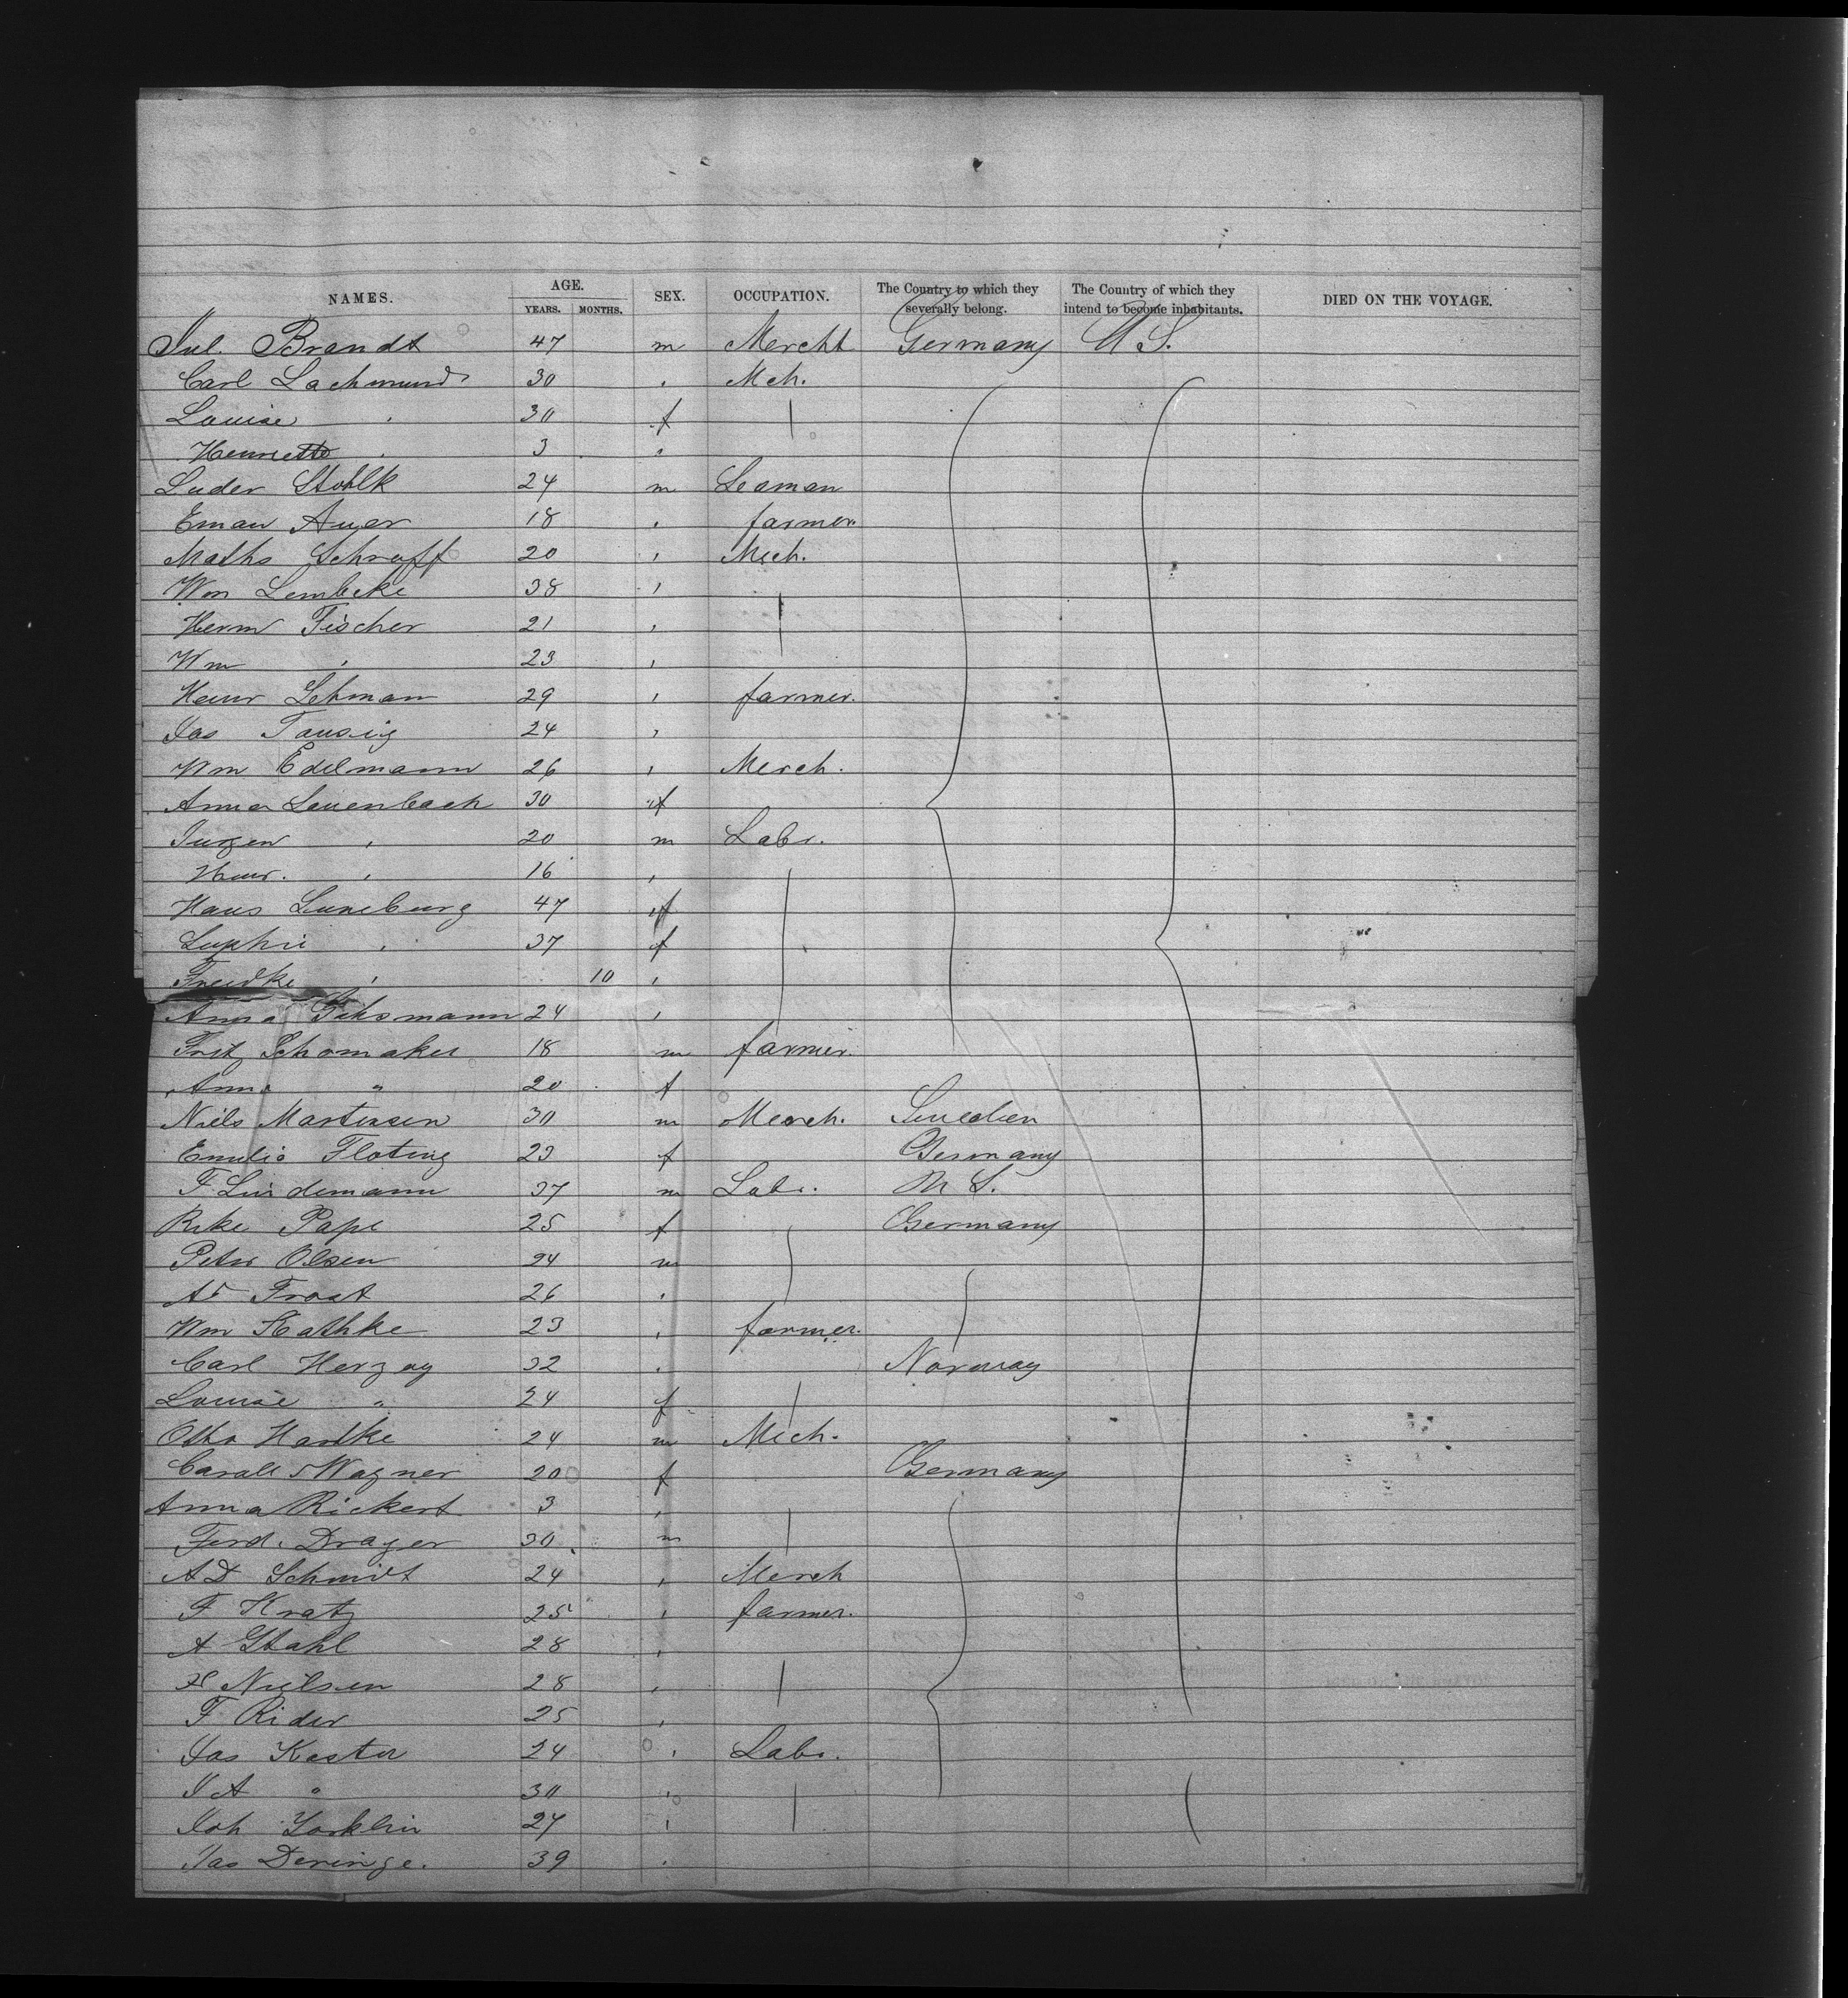 NAMES. AGE. YEARS. MONTHS. SEX. OCCUPATION. The Country to which they severally belong. The Country of which they intend to become inhabitants. DIED ON THE VOYAGE.
Jul. Brandt 47 m Mercht Germany U S.
Carl Lachmund 30 . Mch.
Louise . 30 f
Henriette . 3 .
Luder Stohlk 24 m Seaman
Eman Auer 18 . farmer.
Maths Schruff 20 , Mech.
Wm Lembcke 38 ,
Herm Fischer 21 ,
Wm , 23 ,
Heinr Lehman 29 , farmer.
Jas Tausig 24 ,
Wm Edelmann 26 , Merch.
Anna Lauenbach 30 f
Jurgen , 20 m Labr.
Heinr. , 16 ,
Hans Luneburg 47 f
Sophie , 37 f
Friedke , 10 ,
Anna 24 ,
Fritz Schomaker 18 m farmer.
Anna " 20 f
Niels Martensen 30 m Merch. Sweden
Emilie Floting 23 f Germany
F Lindemann 37 m Labr. U S.
Rike Pape 25 f Germany
Peter Olsen 24 m
Ad Frost 26 .
Wm Kathke 23 , farmer.
Carl Herzog 32 . Norway
Louise " 24 f
Otto Hardke 24 m Mech.
Wagner 20 f Germany
Anna Rickert 3 ,
Ferd. Drager 30 m
A D Schmidt 24 , Merch
F Kratz 25 , farmer.
A Stahl 28 ,
H Nielsen 28 ,
F Rider 25 ,
Jas Kester 24 , Labr.
J A " 30 ,
Joh 27 ,
Jas Deringe. 39 .